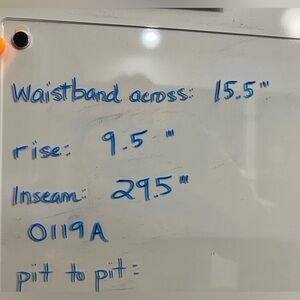 Waistband across: 15.5"
rise: 9.5"
Inseam: 29.5"
0119A
pit to pit: